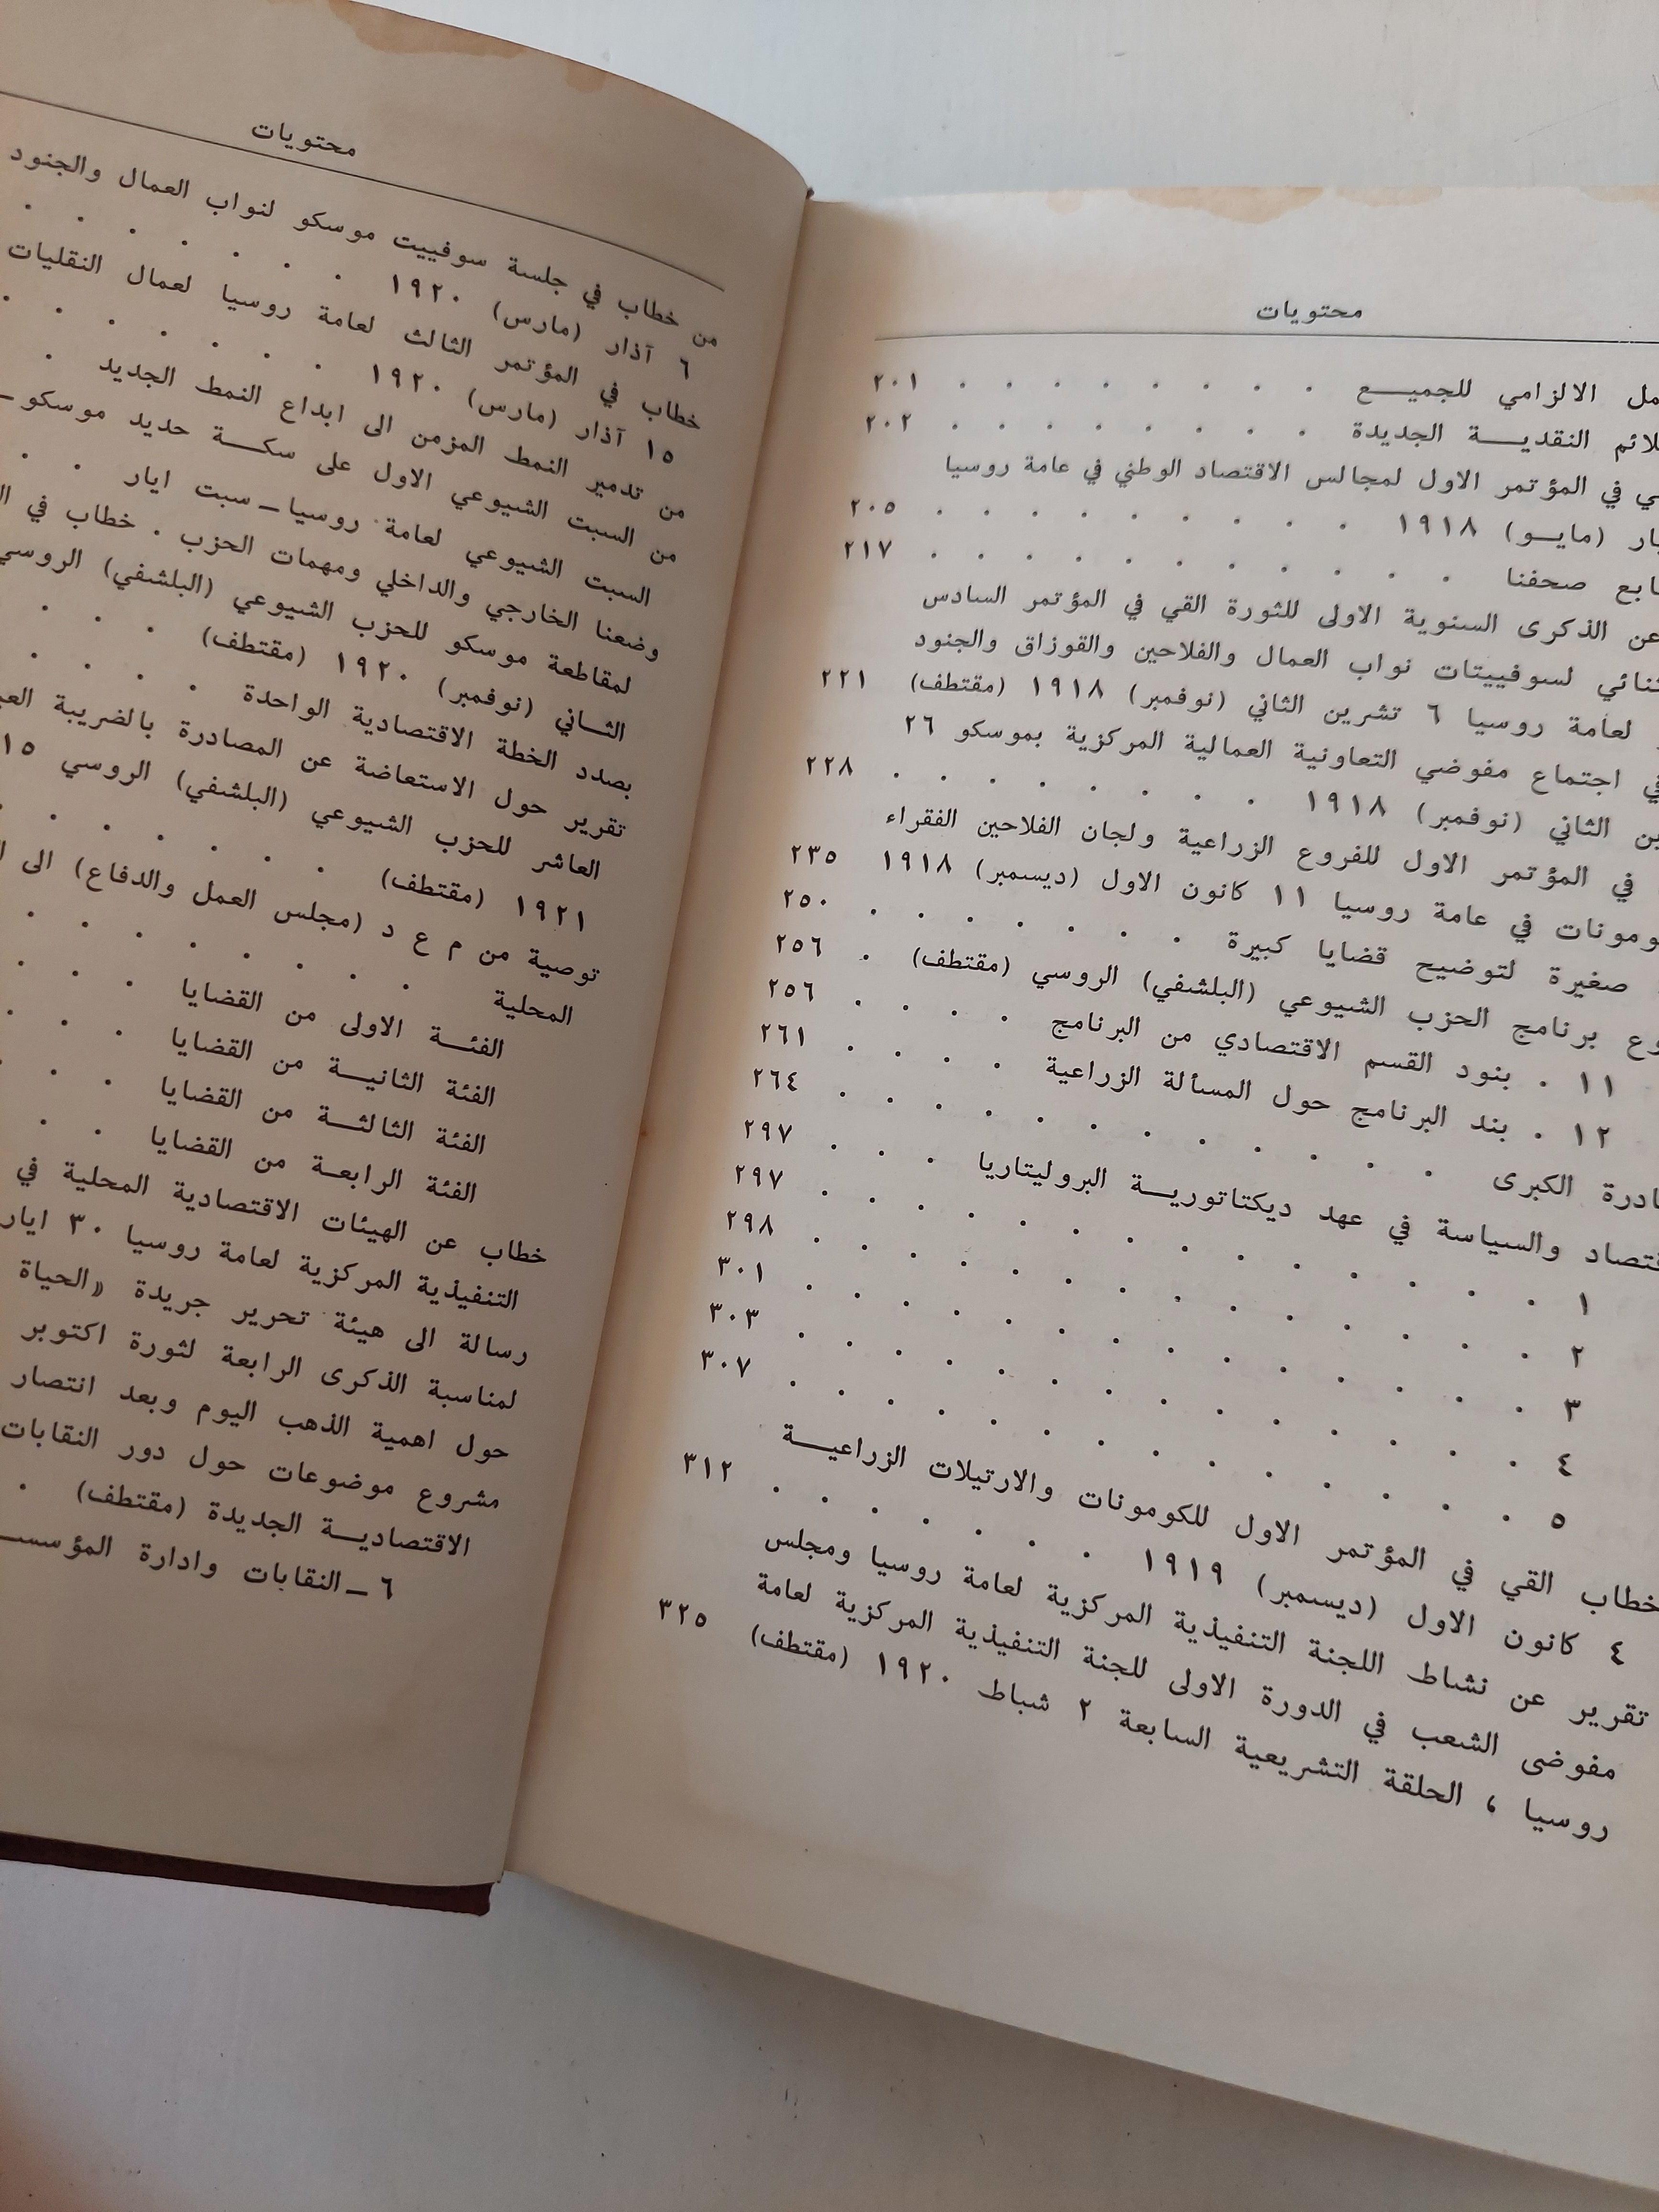 محتويات
الالزامي للجميـع . . . . . . . . ٢٠١
النقديـة الجديدة . . . . . . . . ٢٠٢
في المؤتمر الاول لمجالس الاقتصاد الوطني في عامة روسيا
(مايـو) ١٩١٨ . . . . . . . . . ٢٠٥
صحفنا . . . . . . . . . . . ٢١٧
عن الذكرى السنوية الاولى للثورة القي في المؤتمر السادس
لسوفييتات نواب العمال والفلاحين والقوزاق والجنود
لعامة روسيا ٦ تشرين الثاني (نوفمبر) ١٩١٨ (مقتطف) ٢٢١
اجتماع مفوضي التعاونية العمالية المركزية بموسكو ٢٦
الثاني (نوفمبر) ١٩١٨ . . . . . . . . ٢٢٨
في المؤتمر الاول للفروع الزراعية ولجان الفلاحين الفقراء
في عامة روسيا ١١ كانون الاول (ديسمبر) ١٩١٨ ٢٣٥
صغيرة لتوضيح قضايا كبيرة . . . . . . . ٢٥٠
برنامج الحزب الشيوعي (البلشفي) الروسي (مقتطف) . ٢٥٦
١١ . بنود القسم الاقتصادي من البرنامج . . . . ٢٥٦
١٢ . بند البرنامج حول المسألة الزراعية . . . . ٢٦١
الكبرى . . . . . . . . . . . ٢٦٤
والسياسة في عهد ديكتاتوريـة البروليتاريا . . . ٢٩٧
١ . . . . . . . . . . . . . ٢٩٧
٢ . . . . . . . . . . . . . ٢٩٨
٣ . . . . . . . . . . . . . ٣٠١
٤ . . . . . . . . . . . . . ٣٠٣
٥ . . . . . . . . . . . . . ٣٠٧
خطاب القي في المؤتمر الاول للكومونات والارتيلات الزراعيـة
٤ كانون الاول (ديسمبر) ١٩١٩ . . . . . . . ٣١٢
تقرير عن نشاط اللجنة التنفيذية المركزية لعامة روسيا ومجلس
مفوضى الشعب في الدورة الاولى للجنة التنفيذية المركزية لعامة
روسيا ، الحلقة التشريعية السابعة ٢ شباط ١٩٢٠ (مقتطف) ٣٢٥
محتويات
من خطاب في جلسة سوفييت موسكو لنواب العمال والجنود
٦ آذار (مارس) ١٩٢٠ . . . . . . .
خطاب في المؤتمر الثالث لعامة روسيا لعمال النقليات
١٥ آذار (مارس) ١٩٢٠ . . . . . . .
من تدمير النمط المزمن الى ابداع النمط الجديد .
من السبت الشيوعي الاول على سكـة حديد موسكو ـ
السبت الشيوعي لعامة روسيا ـ سبت ايار . .
وضعنا الخارجي والداخلي ومهمات الحزب . خطاب في
لمقاطعة موسكو للحزب الشيوعي (البلشفي) الروسي
الثـاني (نوفمبر) ١٩٢٠ (مقتطف) . . . .
بصدد الخطة الاقتصادية الواحدة . . . . .
تقرير حول الاستعاضة عن المصادرة بالضريبة
العاشر للحزب الشيوعي (البلشفي) الروسي ١٥
١٩٢١ (مقتطف) . . . . . . .
توصية من م ع د (مجلس العمل والدفاع) الى
المحلية . . . . . . . .
الفئـة الاولى من القضايا . . . .
الفئة الثانيـة من القضايا . . .
الفئة الثالثـة من القضايا . . .
الفئة الرابعـة من القضايا . .
خطاب عن الهيئات الاقتصادية المحلية في
التنفيذية المركزية لعامة روسيا ٣٠ ايار
رسالة الى هيئة تحرير جريدة «الحياة
لمناسبة الذكرى الرابعة لثورة اكتوبر
حول اهمية الذهب اليوم وبعد انتصار
مشروع موضوعات حول دور النقابات
الاقتصاديـة الجديدة (مقتطف) .
٦ ـ النقابات وادارة